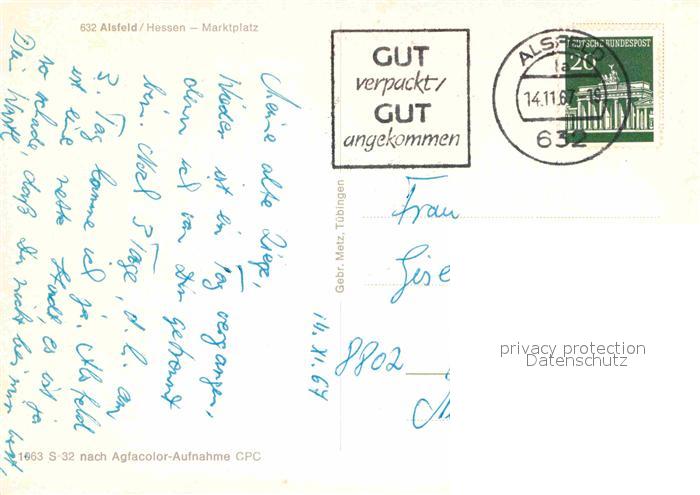 632 Alsfeld / Hessen – Marktplatz
GUT
verpackt/
GUT
angekommen
ALSFELD
1a
14.11.67-19
632
DEUTSCHE BUNDESPOST
20
Meine alte Ziege,
Wieder ist ein Tag vergangen,
denn ich von Dir getrennt
bin. Noch 3 Tage, d. h. am
3. Tag komme ich ja. Alsfeld
ist eine nette Stadt, es ist ja
so schade, daß Du nicht bei mir bist,
Dein
14. XI. 67
Gebr. Metz, Tübingen
Frau
Gise
8802
privacy protection
Datenschutz
1063 S-32 nach Agfacolor-Aufnahme CPC